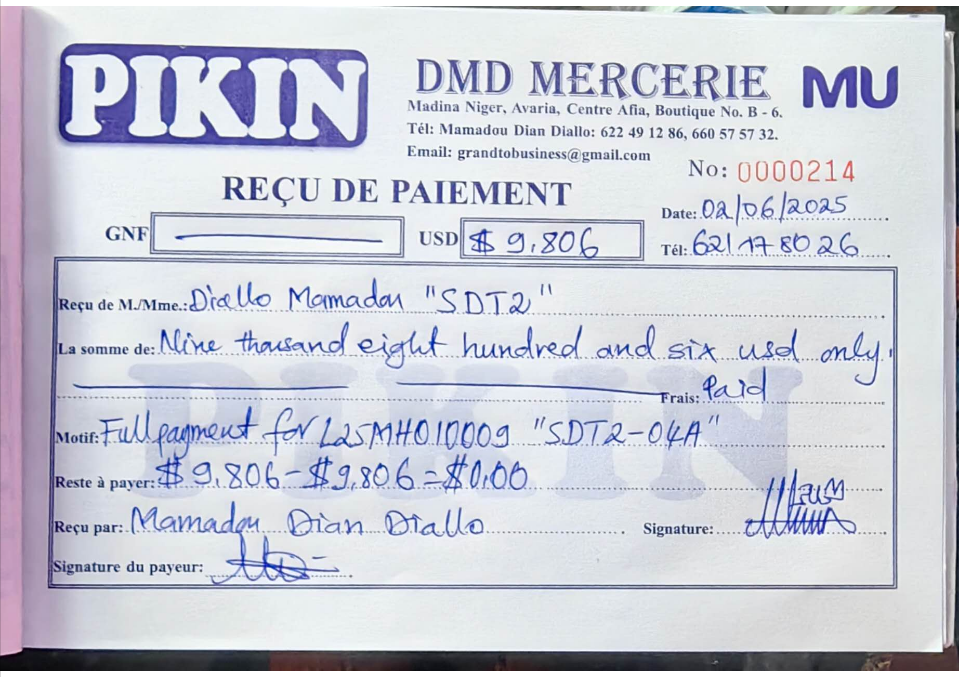 PIKIN
DMD MERCERIE
MU
Madina Niger, Avaria, Centre Afia, Boutique No. B - 6.
Tél: Mamadou Dian Diallo: 622 49 12 86, 660 57 57 32.
Email: grandtobusiness@gmail.com
No: 0000214
REÇU DE PAIEMENT
Date: 02/06/2025
GNF
USD $ 9,806
Tél: 621 17 80 26
Reçu de M./Mme.: Diallo Mamadou "SDT2"
La somme de: Nine thousand eight hundred and six usd only.
Frais: Paid
PIKIN
Motif: Full payment for L25MH010009 "SDT2-04A"
Reste à payer: $9,806-$9,806=$0.00
Reçu par: Mamadou Dian Diallo
Signature:
Signature du payeur: